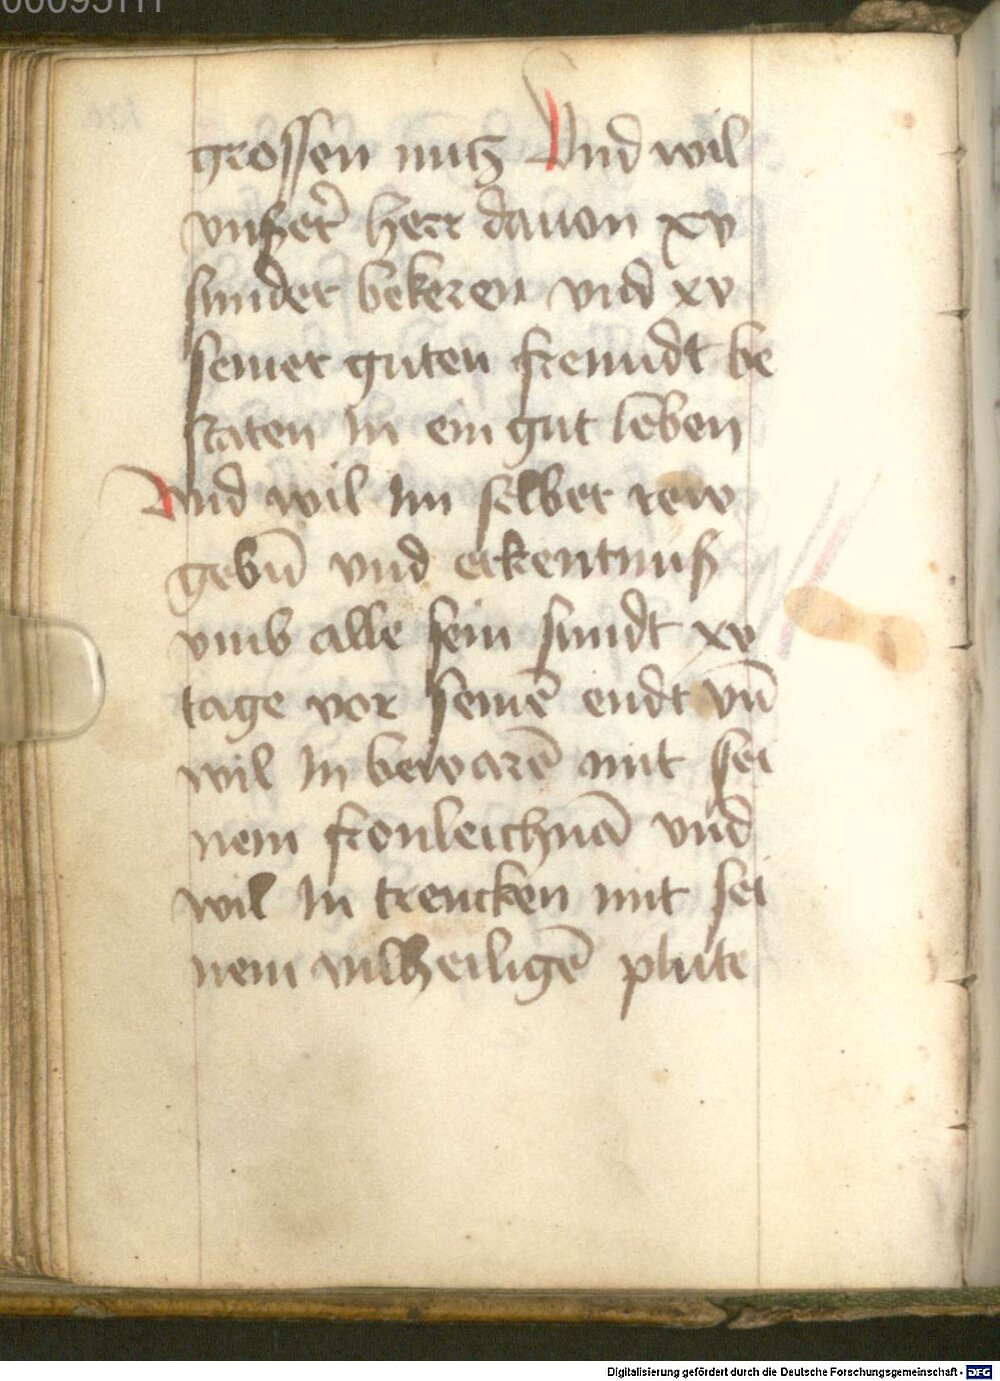 grossen nucz Vnd wil
vnßer̃ herr dauon xv
sunder bekeren vnd xv
seiner guten freundt be
staten in ein gut leben
Vnd wil im selber rew
gebñ vnd erkentnuß
vmb alle sein sundt xv
tage vor seinē endt vñ
wil in bewarē mit sei
nem fronleichnā vnd
wil in trencken mit sei
nem vilheiligē plute
Digitalisierung gefördert durch die Deutsche Forschungsgemeinschaft - DFG